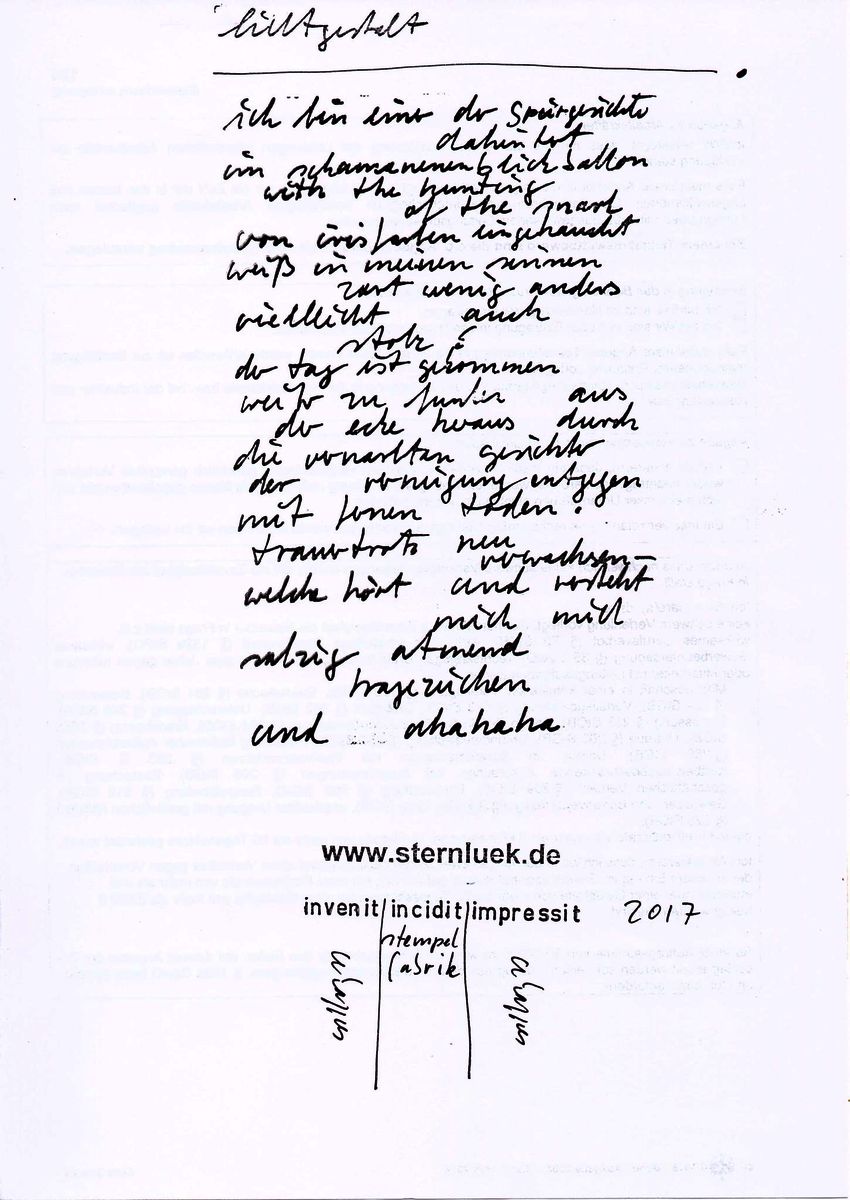 lichtgestalt
ich bin einer der spürgesichte
dahintot
im schamanenenblickballon
with the hunting
of the snark
von irisfarben eingehaucht
weiß in meinen sinnen
zart wenig anders
vielleicht auch
stolz ?
der tag ist gekommen
weiter zu aus
der ecke heraus durch
die vernarbten gesichter
der verneigung entgegen
mit tönen
neu verwachsen –
welche hört und versteht
mich mild
salzig atmend
fragezeichen
und ahahaha
www.sternluek.de
invenit | incidit | impressit 2017
stempel
fabrik